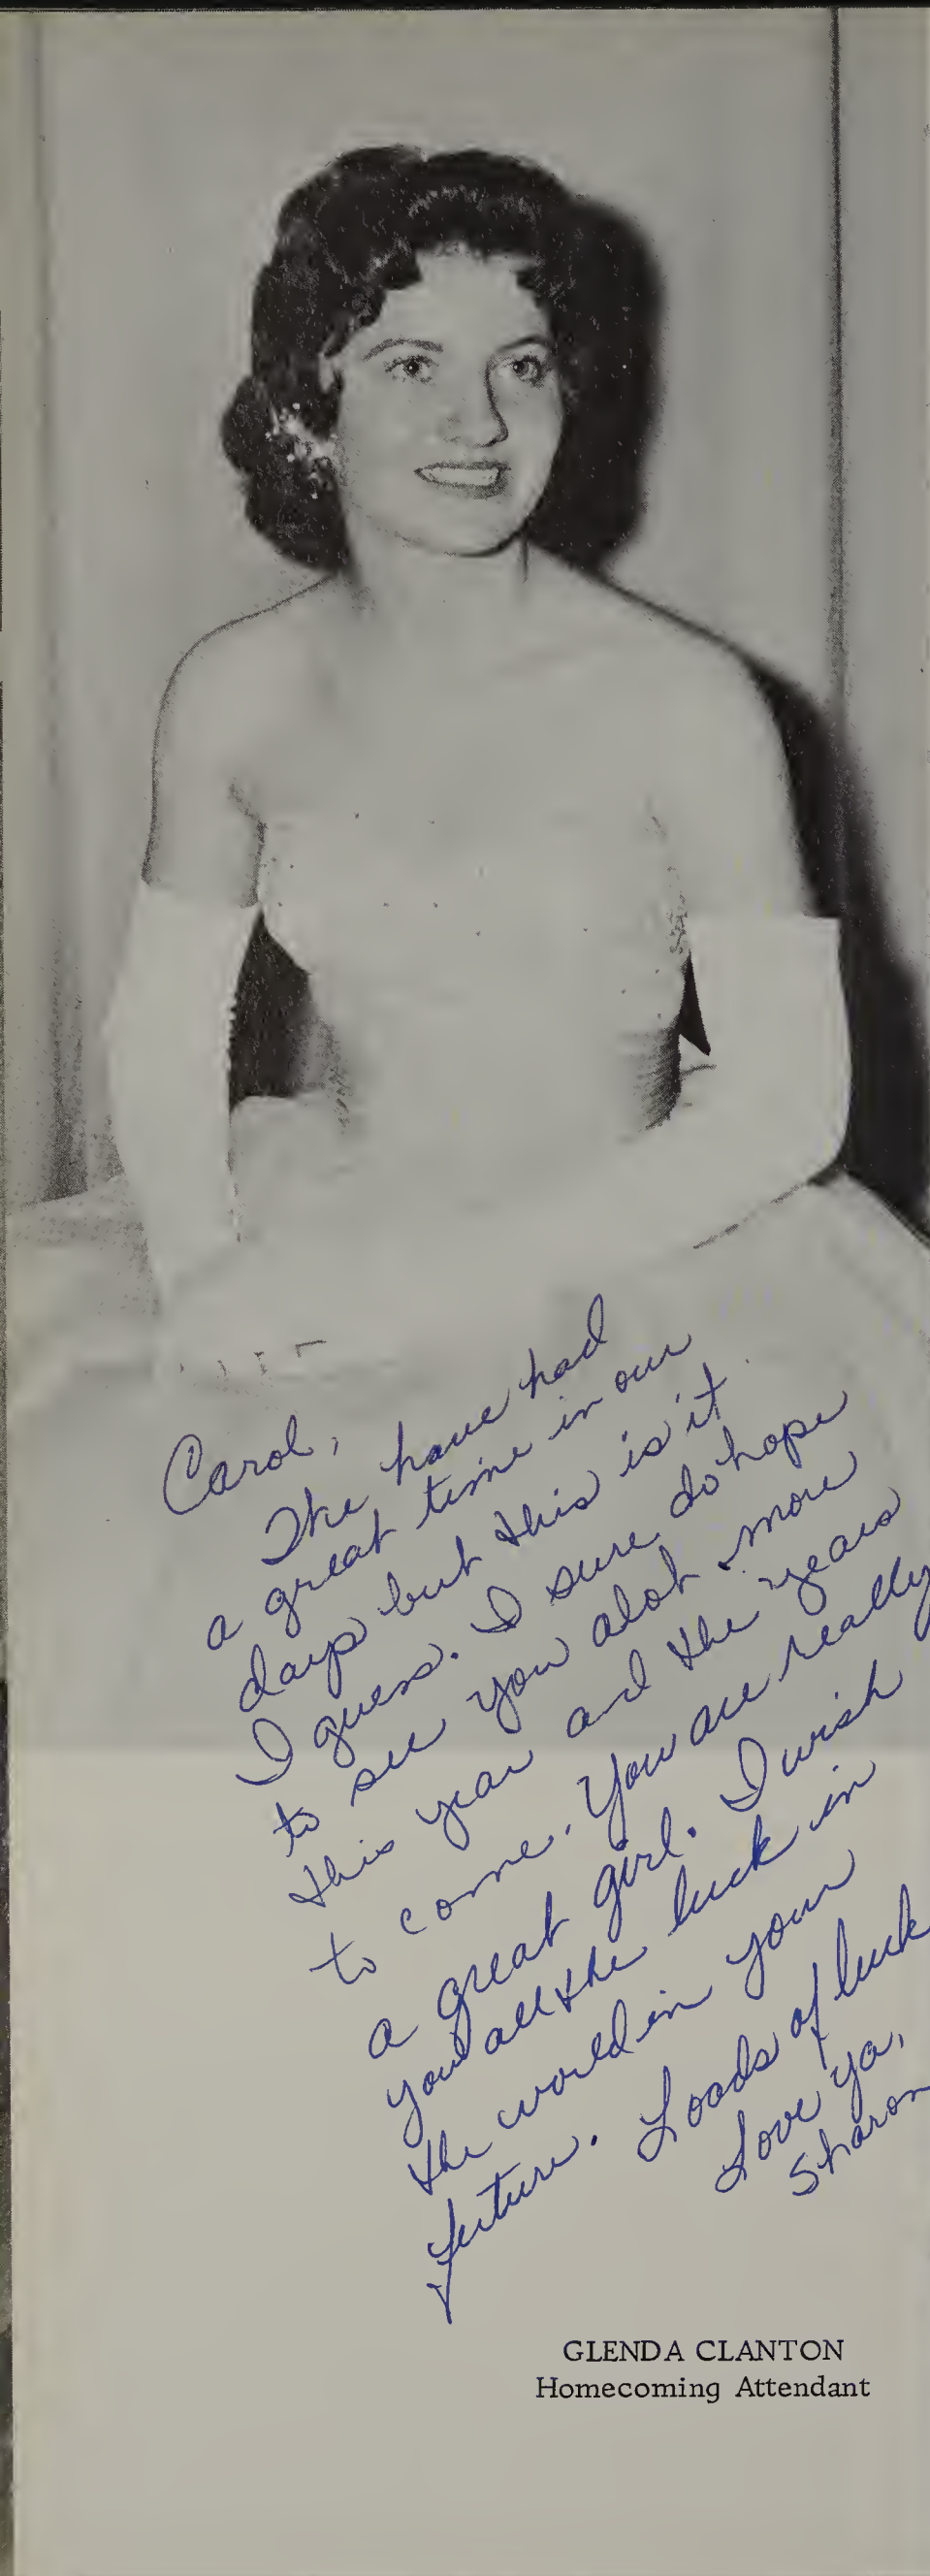 Carol,
The have had
a great time in our
days but this is it
I guess. I sure do hope
to see you alot more
this year and the years
to come. You are really
a great girl. I wish
you all the luck in
the world in your
future. Loads of luck
Love ya,
Sharon
GLENDA CLANTON
Homecoming Attendant